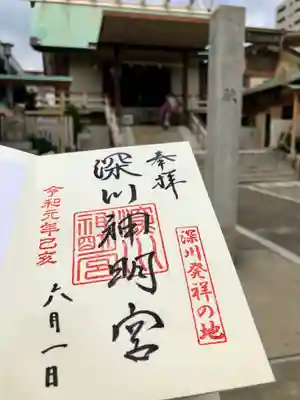 奉拝
深川発祥の地
深川神明宮
令和元年己亥
六月一日